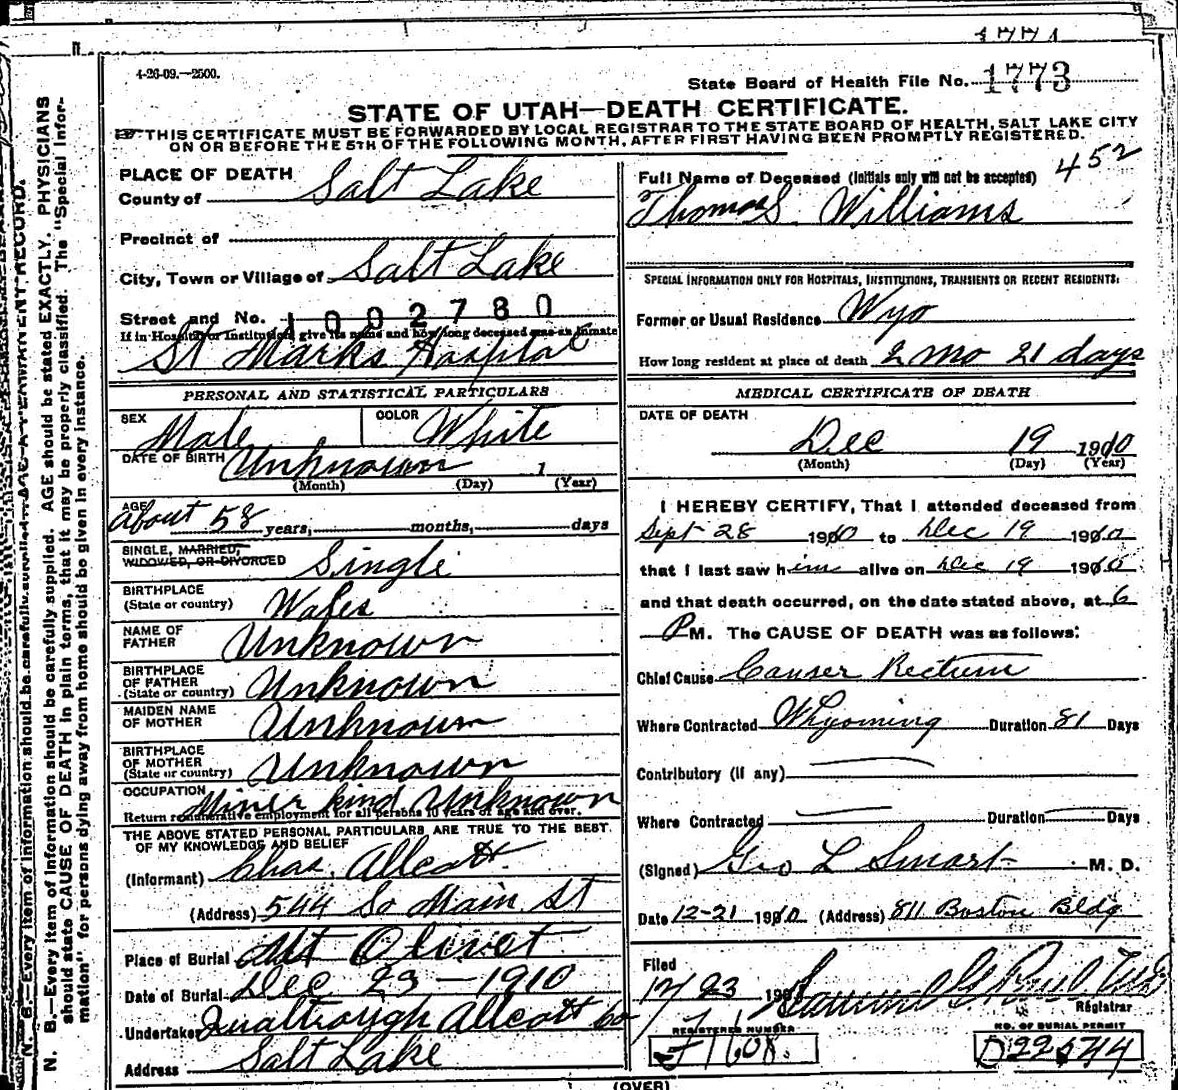 1771
4-26-09.—2500.
State Board of Health File No. 1773
STATE OF UTAH—DEATH CERTIFICATE.
THIS CERTIFICATE MUST BE FORWARDED BY LOCAL REGISTRAR TO THE STATE BOARD OF HEALTH, SALT LAKE CITY
ON OR BEFORE THE 5TH OF THE FOLLOWING MONTH, AFTER FIRST HAVING BEEN PROMPTLY REGISTERED.
N. B.—Every item of information should be carefully supplied. AGE should be stated EXACTLY. PHYSICIANS
should state CAUSE OF DEATH in plain terms, that it may be properly classified. The "Special Infor-
mation" for persons dying away from home should be given in every instance.
PLACE OF DEATH
County of Salt Lake
Precinct of
City, Town or Village of Salt Lake
Street and No. 1002780
If in Hospital or Institution give its name and how long deceased was an inmate
St Marks Hospital
PERSONAL AND STATISTICAL PARTICULARS
SEX Male COLOR White
DATE OF BIRTH Unknown 1
(Month) (Day) (Year)
AGE About 58 years, months, days
SINGLE, MARRIED,
WIDOWED, OR DIVORCED Single
BIRTHPLACE
(State or country) Wales
NAME OF
FATHER Unknown
BIRTHPLACE
OF FATHER
(State or country) Unknown
MAIDEN NAME
OF MOTHER Unknown
BIRTHPLACE
OF MOTHER
(State or country) Unknown
OCCUPATION Miner kind Unknown
Return remunerative employment for all persons 10 years of age and over.
THE ABOVE STATED PERSONAL PARTICULARS ARE TRUE TO THE BEST
OF MY KNOWLEDGE AND BELIEF
(Informant) Chas. Allcott
(Address) 544 So Main St
Place of Burial Mt Olivet
Date of Burial Dec 23 - 1910
Undertaker Qualtrough Allcott Co
Address Salt Lake
Full Name of Deceased (Initials only will not be accepted) 452
Thomas Williams
SPECIAL INFORMATION ONLY FOR HOSPITALS, INSTITUTIONS, TRANSIENTS OR RECENT RESIDENTS:
Former or Usual Residence Wyo
How long resident at place of death 2 mo 21 days
MEDICAL CERTIFICATE OF DEATH
DATE OF DEATH
Dec 19 1910
(Month) (Day) (Year)
I HEREBY CERTIFY, That I attended deceased from
Sept 28 1910 to Dec 19 1910
that I last saw him alive on Dec 19 1910
and that death occurred, on the date stated above, at 6
P M. The CAUSE OF DEATH was as follows:
Chief Cause Cancer Rectum
Where Contracted Whyoming Duration 81 Days
Contributory (if any)
Where Contracted Duration Days
(Signed) Geo L Smart M. D.
Date 12-21 1910 (Address) 811 Boston Bldg
Filed
12/23 190
Registrar
REGISTERED NUMBER
J1608.
NO. OF BURIAL PERMIT
D22544
(OVER)